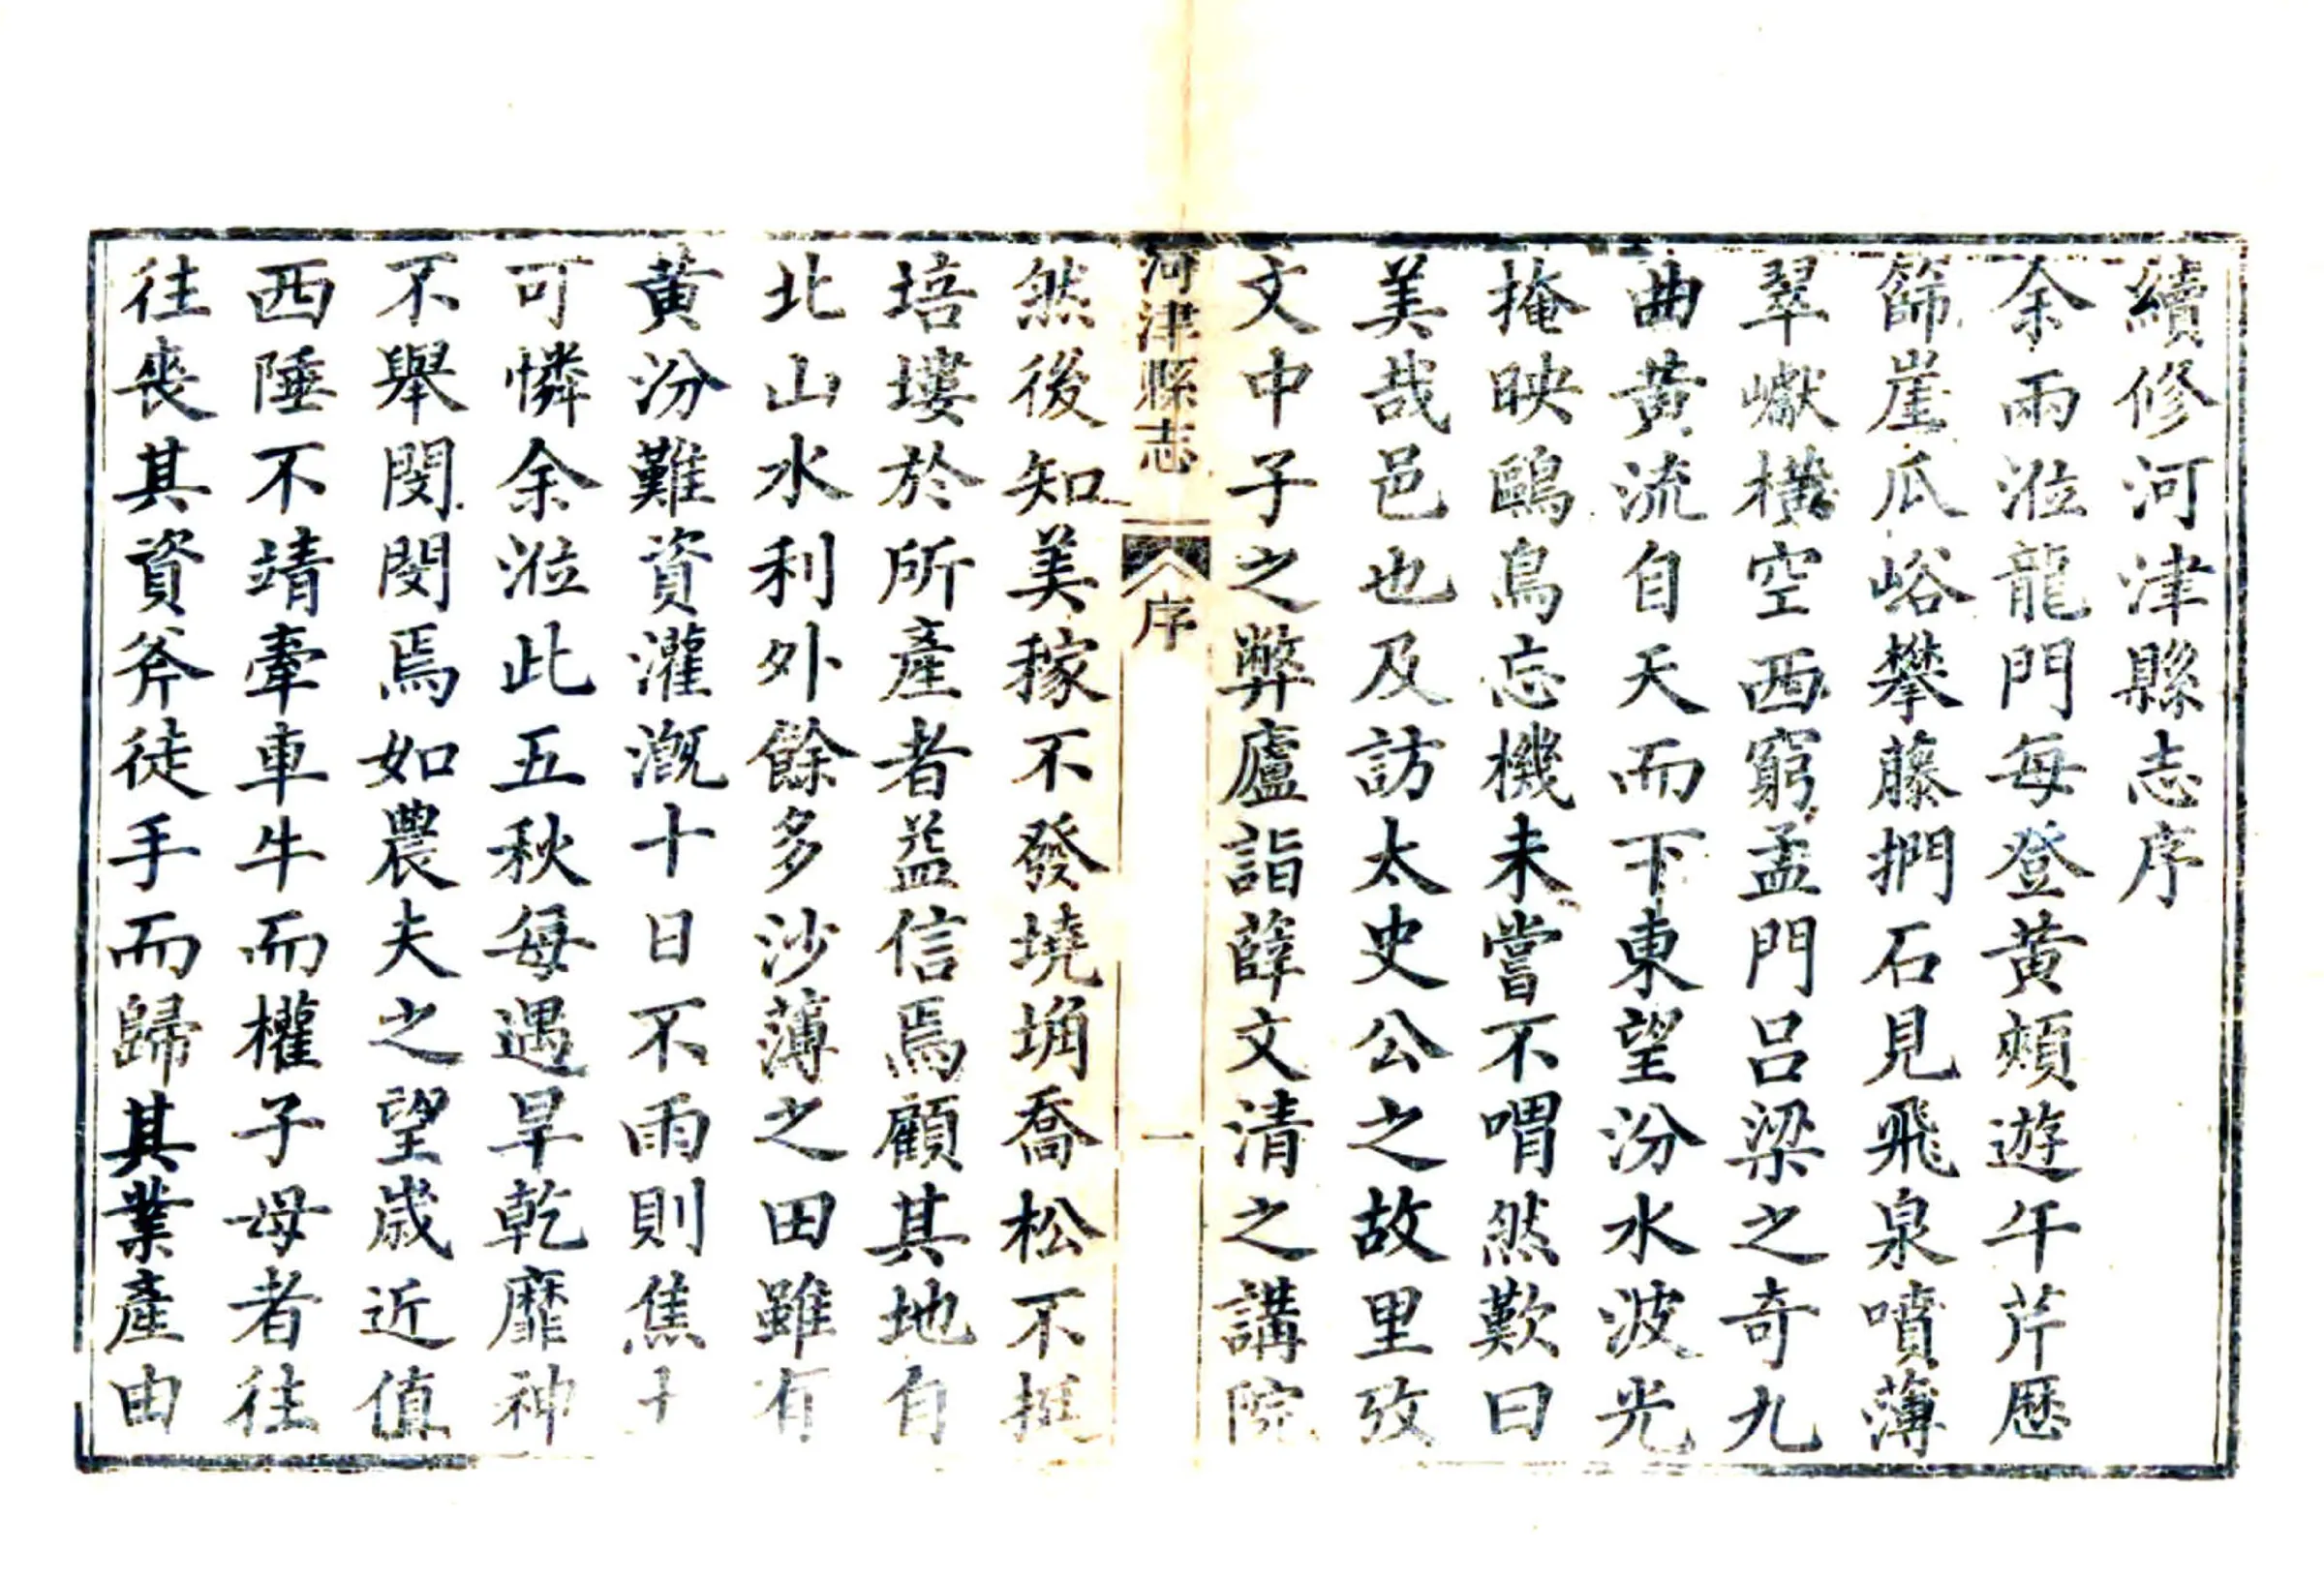 續修河津縣志序
余兩涖龍門每登黃頰遊午芹歷
篩崖瓜峪攀藤捫石見飛泉噴薄
翠巘橫空西窮孟門呂梁之奇九
曲黃流自天而下東望汾水波光
掩映鷗鳥忘機未嘗不喟然歎曰
美哉邑也及訪太史公之故里攷
文中子之弊廬詣薛文清之講院
河津縣志
序
一
然後知美稼不發墝埆喬松不挺
培塿於所產者益信焉顧其地自
北山水利外餘多沙薄之田雖有
黃汾難資灌溉十日不雨則焦土
可憐余涖此五秋每遇旱乾靡神
不舉閔閔焉如農夫之望歲近值
西陲不靖牽車牛而權子母者往
往喪其資斧徒手而歸其業產由